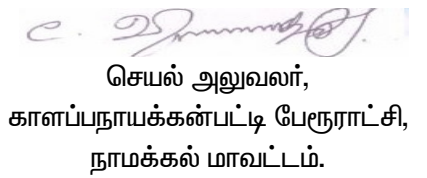 செயல் அலுவலர்,
காளப்பநாயக்கன்பட்டி பேரூராட்சி,
நாமக்கல் மாவட்டம்.